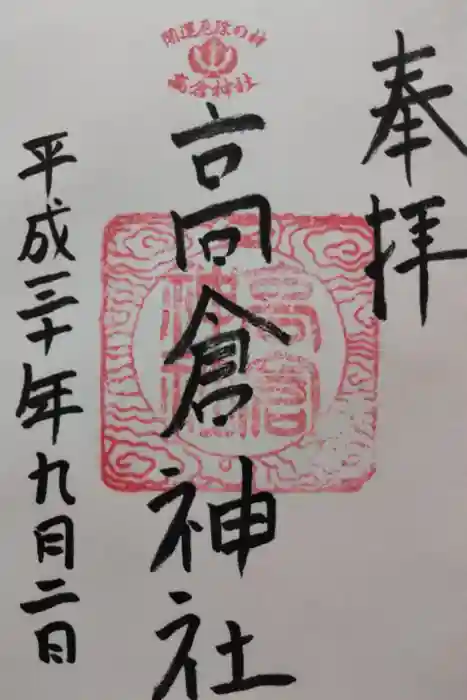 奉拝
開運厄除の神
高倉神社
高倉神社
高倉神社
平成三十年九月二日